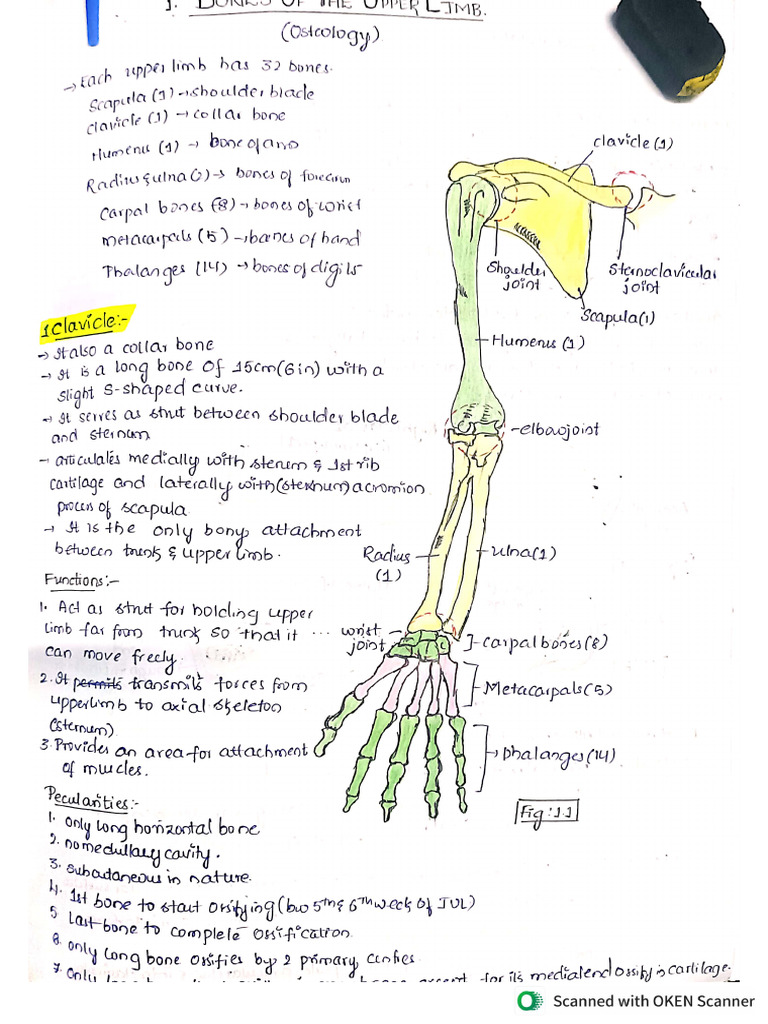 1. BONES OF THE UPPER LIMB.
(Osteology)
→ Each upper limb has 32 bones.
Scapula (1) → shoulder blade
clavicle (1) → collar bone
Humerus (1) → bone of arm
Radius & ulna () → bones of forearm
Carpal bones (8) → bones of wrist
metacarpals (5) → bones of hand
Phalanges (14) → bones of digits
clavicle (1)
Shoulder joint
Sternoclavicular joint
Scapula(1)
Humerus (1)
elbowjoint
Radius (1)
ulna(1)
wrist joint
carpal bones (8)
Metacarpals (5)
phalanges (14)
Fig: 1.1
1 Clavicle:-
→ It also a collar bone
→ It is a long bone of 15cm (6in) with a
slight S-shaped curve.
→ It serves as strut between shoulder blade
and sternum
→ articulates medially with sternum & 1st rib
cartilage and laterally with (sternum) acromion
process of scapula
→ It is the only bony attachment
between trunk & upper limb.
Functions:-
1. Act as strut for holding upper
limb far from trunk so that it ...
can move freely.
2. It permits transmits forces from
upperlimb to axial skeleton
(sternum)
3. Provides an area for attachment
of muscles.
Peculiarities:-
1. only long horizontal bone
2. no medullary cavity.
3. subcutaneous in nature.
4. 1st bone to start ossifying (b/w 5th & 6th week of IUL)
5 Last bone to complete ossification.
6. only long bone ossifies by 2 primary centres
7. Only long bone except for its medial end ossify in cartilage.
Scanned with OKEN Scanner